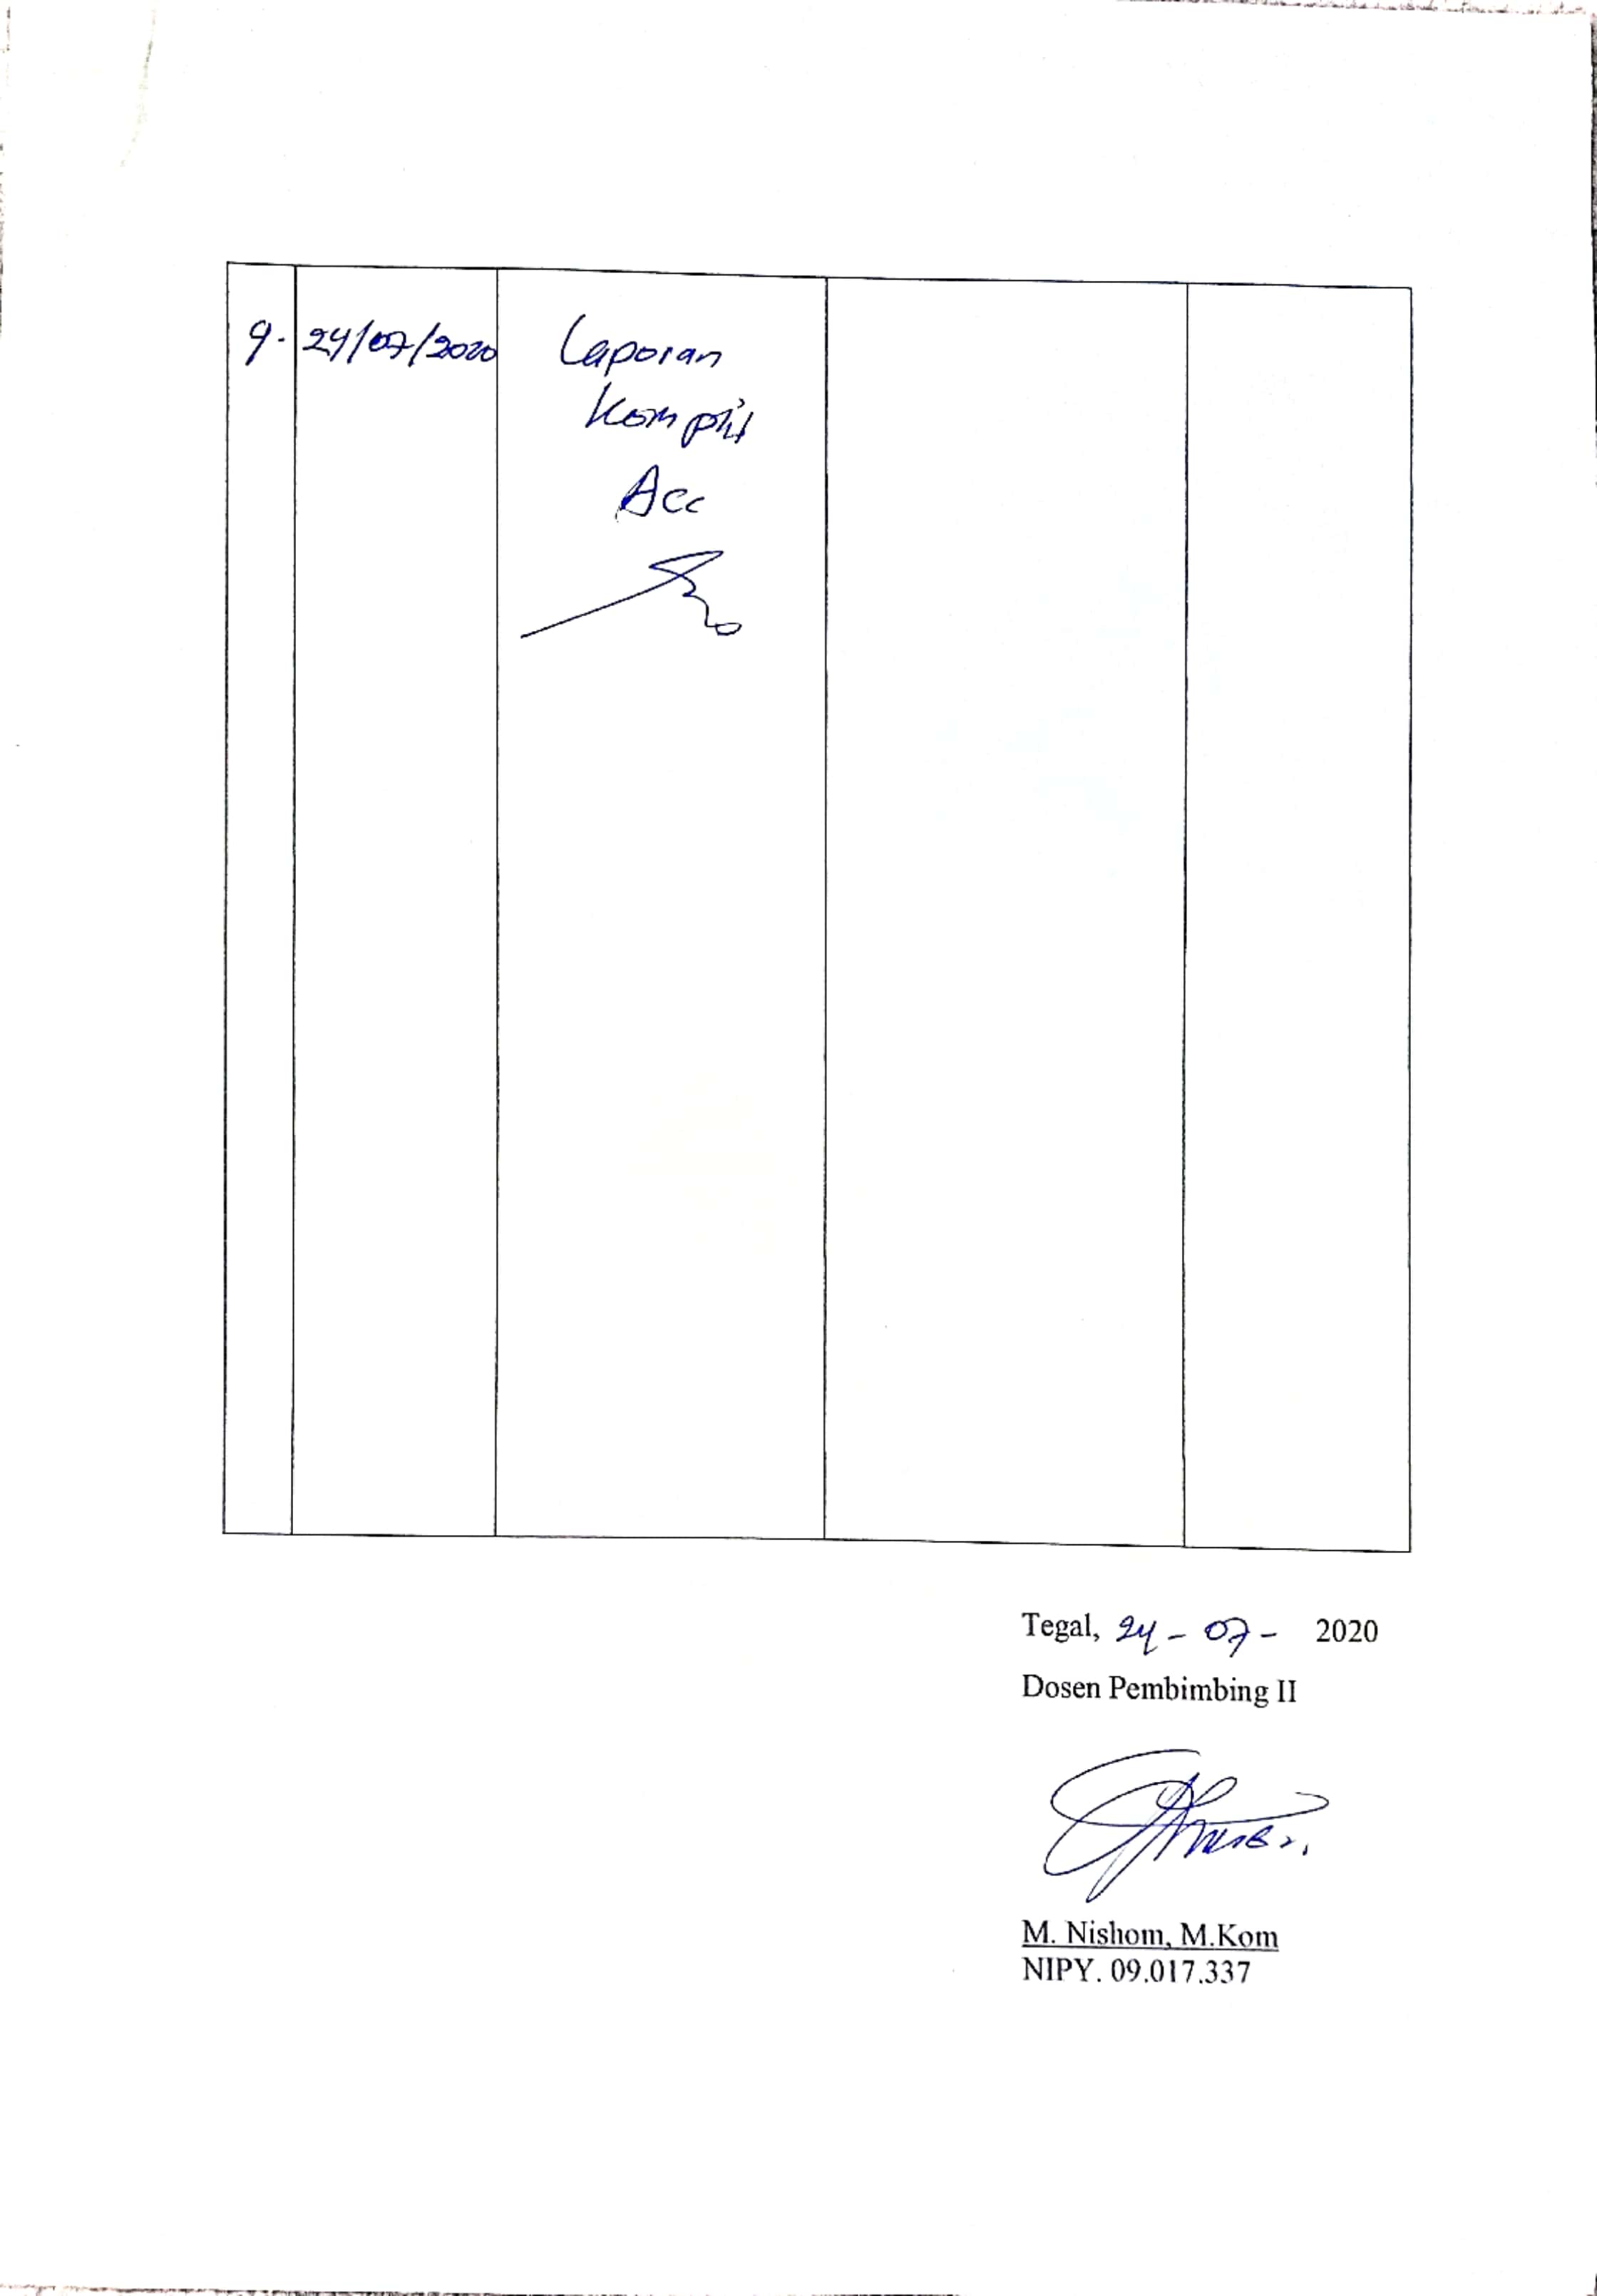 9. 24/07/2020 Laporan
Komplit
Acc
Tegal, 24-07- 2020
Dosen Pembimbing II
M. Nishom, M.Kom
NIPY. 09.017.337